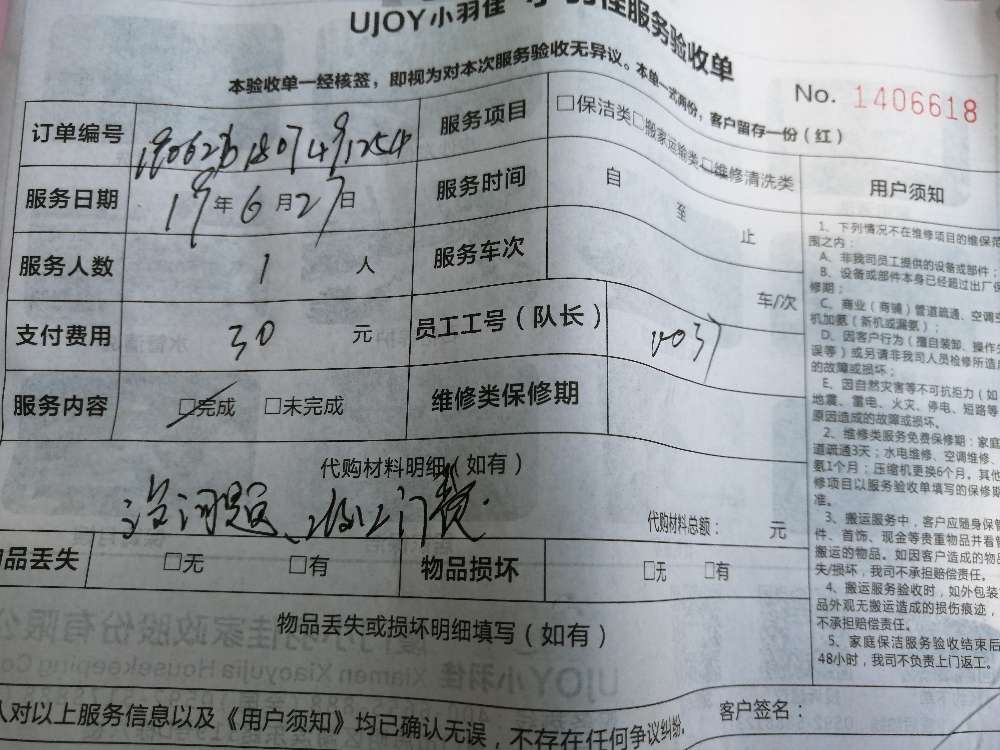 UJOY小羽佳 小羽佳服务验收单
本验收单一经核签，即视为对本次服务验收无异议。本单一式两份，客户留存一份（红）
No. 1406618
订单编号
服务项目 □保洁类□搬家运输类□维修清洗类
服务日期 19年6月27日
服务时间 自 至 止
服务人数 1 人
服务车次 车/次
支付费用 30 元
员工工号（队长）
服务内容 □完成 □未完成
维修类保修期
代购材料明细（如有）
没问题、收上门费.
代购材料总额： 元
物品丢失 □无 □有
物品损坏 □无 □有
物品丢失或损坏明细填写（如有）
人对以上服务信息以及《用户须知》均已确认无误，不存在任何争议纠纷。
客户签名：
用户须知
1、下列情况不在维修项目的维保范
围之内：
A、非我司员工提供的设备或部件；
B、设备或部件本身已经超过出厂保
修期；
C、商业（商铺）管道疏通、空调空
机加氨（新机或漏氨）；
D、因客户行为（擅自装卸、操作失
误等）或另请非我司人员检修所造成
的故障或损坏；
E、因自然灾害等不可抗拒力（如
地震、雷电、火灾、停电、短路等
原因造成的故障或损坏。
2、维修类服务免费保修期：家庭
道疏通3天；水电维修、空调维修、
氨1个月；压缩机更换6个月。其他
修项目以服务验收单填写的保修期
准。
3、搬运服务中，客户应随身保管
件、首饰、现金等贵重物品并看管
搬运的物品。如因客户造成的物品
失/损坏，我司不承担赔偿责任。
4、搬运服务验收时，如外包装
品外观无搬运造成的损伤痕迹，
不承担赔偿责任。
5、家庭保洁服务验收结束后
48小时，我司不负责上门返工。